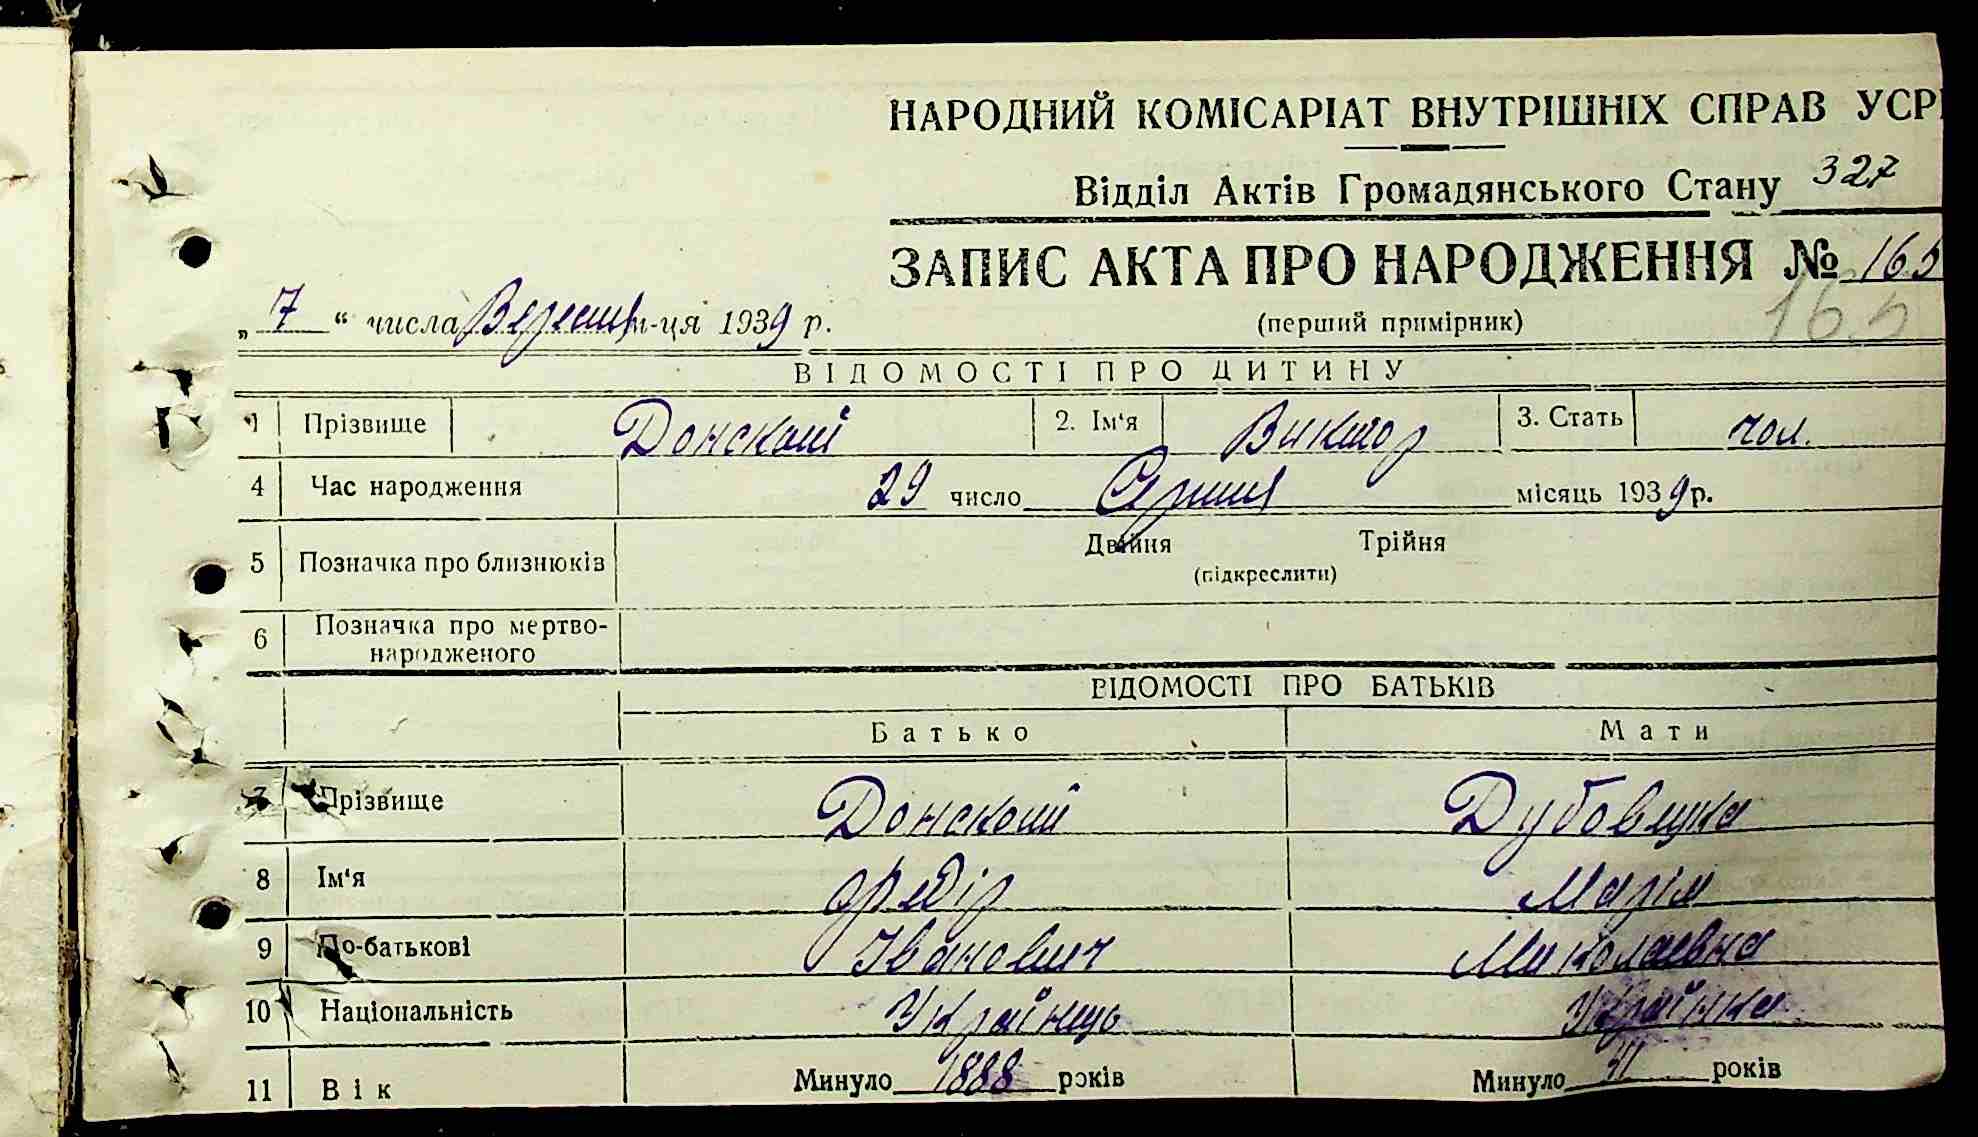 НАРОДНИЙ КОМІСАРІАТ ВНУТРІШНІХ СПРАВ УСР
Відділ Актів Громадянського Стану 327
ЗАПИС АКТА ПРО НАРОДЖЕННЯ № 165
„ 7 “ числа Вересня м-ця 1939 р.
(перший примірник) 165
ВІДОМОСТІ ПРО ДИТИНУ
1 Прізвище Донской 2. Ім'я Виктор 3. Стать чол.
4 Час народження 29 число Серпня місяць 1939 р.
5 Позначка про близнюків Двійня Трійня
(підкреслити)
6 Позначка про мертво-
народженого
ВІДОМОСТІ ПРО БАТЬКІВ
Батько Мати
7 Прізвище Донской
8 Ім'я Федір Марія
9 По-батькові Іванович Миколаевна
10 Національність Українець Українка
11 Вік Минуло 1888 років Минуло років